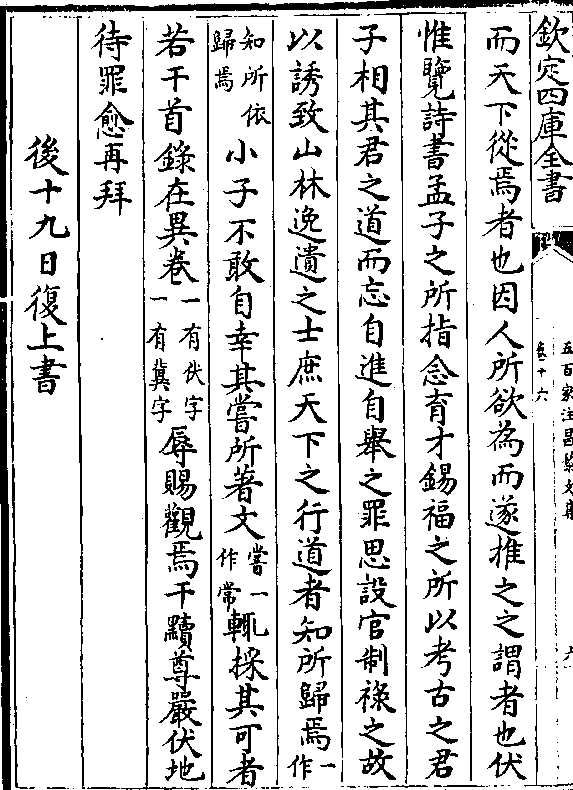 欽定四庫全書
五百家注昌黎文集
卷十六
六
而天下從焉者也因人所欲為而遂推之之謂者也伏
惟覽詩書孟子之所指念育才錫福之所以考古之君
子相其君之道而忘自進自舉之罪思設官制祿之故
以誘致山林逸遺之士庶天下之行道者知所歸焉一作
知所依歸焉小子不敢自幸其嘗所著文嘗一作常輒採其可者
若干首錄在異卷一有伏字一有冀字辱賜觀焉干黷尊嚴伏地
待罪愈再拜
後十九日復上書